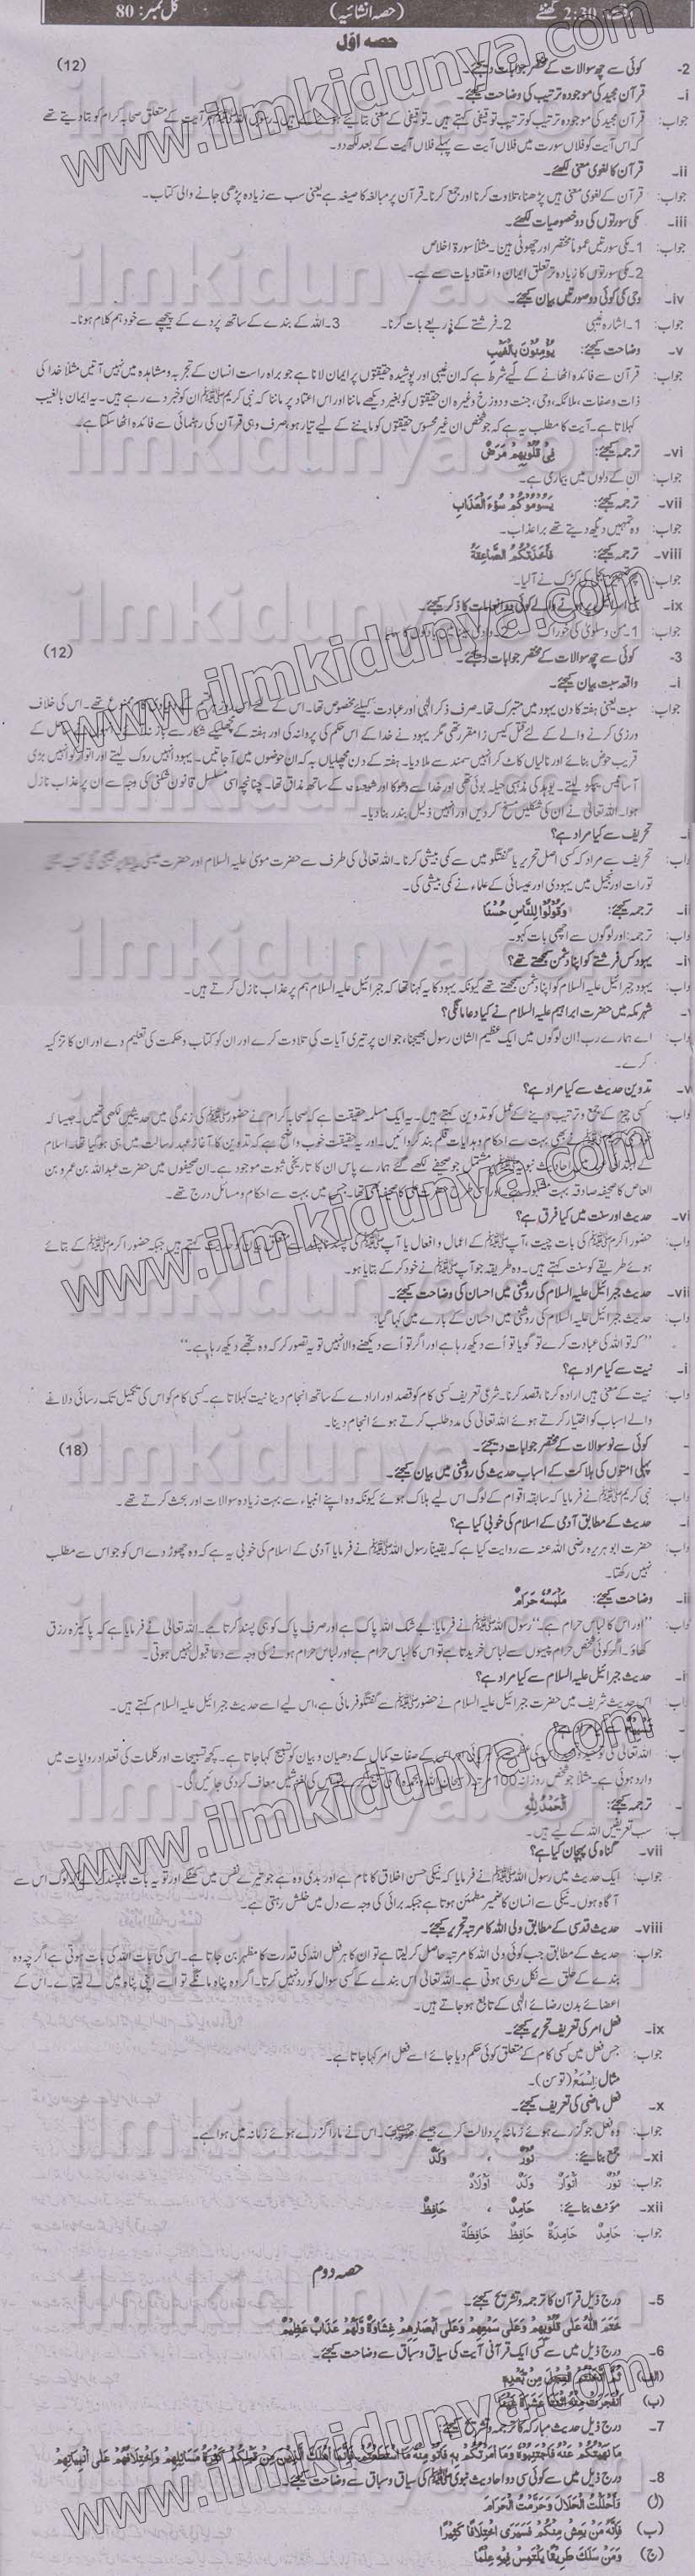 وقت: 2:30 گھنٹے (حصہ انشائیہ) کل نمبر: 80
حصہ اوّل
2- کوئی سے چھ سوالات کے مختصر جوابات دیجئے۔ (12)
i- قرآن مجید کی موجودہ ترتیب کی وضاحت کیجئے۔
جواب: قرآن مجید کی موجودہ ترتیب کو ترتیب توقیفی کہتے ہیں۔ توقیفی کے معنی بتائے ہوئے کے ہیں۔ رسول اللہ ﷺ ہر آیت کے متعلق صحابہ کرام کو بتا دیتے تھے
کہ اس آیت کو فلاں سورت میں فلاں آیت سے پہلے فلاں آیت کے بعد لکھ دو۔
ii- قرآن کا لغوی معنی لکھئے۔
جواب: قرآن کے لغوی معنی ہیں پڑھنا، تلاوت کرنا اور جمع کرنا۔ قرآن پر مبالغہ کا صیغہ ہے یعنی سب سے زیادہ پڑھی جانے والی کتاب۔
iii- مکی سورتوں کی دو خصوصیات لکھئے۔
جواب: 1۔ مکی سورتیں عموماً مختصر اور چھوٹی ہیں۔ مثلاً سورۃ اخلاص
2۔ مکی سورتوں کا زیادہ تر تعلق ایمان و اعتقادیات سے ہے۔
iv- وحی کی کوئی دو صورتیں بیان کیجئے۔
جواب: 1۔ اشارہ غیبی 2۔ فرشتے کے ذریعے بات کرنا۔ 3۔ اللہ کے بندے کے ساتھ پردے کے پیچھے سے خود ہم کلام ہونا۔
v- وضاحت کیجئے: یُؤْمِنُوْنَ بِالْغَیْبِ
جواب: قرآن سے فائدہ اٹھانے کے لیے شرط ہے کہ ان غیبی اور پوشیدہ حقیقتوں پر ایمان لانا ہے جو براہ راست انسان کے تجربہ و مشاہدہ میں نہیں آتیں مثلاً خدا کی
ذات و صفات، ملائکہ، وحی، جنت و دوزخ وغیرہ ان حقیقتوں کو بغیر دیکھے ماننا اور اس اعتماد پر ماننا کہ نبی کریم ﷺ ان کو خبر دے رہے ہیں۔ یہ ایمان بالغیب
کہلاتا ہے۔ آیت کا مطلب یہ ہے کہ جو شخص ان غیر محسوس حقیقتوں کو ماننے کے لیے تیار ہو صرف وہی قرآن کی رہنمائی سے فائدہ اٹھا سکتا ہے۔
vi- ترجمہ کیجئے: فِیْ قُلُوْبِهِمْ مَرَضٌ
جواب: ان کے دلوں میں بیماری ہے۔
vii- ترجمہ کیجئے: یَسُوْمُوْنَكُمْ سُوْٓءَ الْعَذَابِ
جواب: وہ تمہیں دیتے تھے برا عذاب۔
viii- ترجمہ کیجئے: فَاَخَذَتْكُمُ الصَّاعِقَةُ
جواب: کڑک نے آلیا۔
ix- بنی اسرائیل پر ہونے والے کوئی دو انعامات کا ذکر کیجئے۔
جواب: 1۔ من و سلویٰ کی خوراک 2۔
3- کوئی سے چھ سوالات کے مختصر جوابات دیجئے۔ (12)
i- واقعہ سبت بیان کیجئے۔
جواب: سبت یعنی ہفتہ کا دن یہود میں متبرک تھا۔ صرف ذکر الٰہی اور عبادت کیلئے مخصوص تھا۔ ممنوع تھے۔ اس کی خلاف
ورزی کرنے والے کے لئے قتل کی سزا مقرر تھی مگر یہود نے خدا کے اس حکم کی پروا نہ کی اور ہفتہ کے مچھلیکے شکار سے باز نہ
قریب حوض بنائے اور نالیاں کاٹ کر انہیں سمندر سے ملا دیا۔ ہفتہ کے دن مچھلیاں بہہ کہ ان حوضوں میں آجاتیں۔ یہود انہیں روک لیتے اور اتوار کو انہیں بڑی
آسانی سے پکڑ لیتے۔ یہ یہود کی مذہبی حیلہ جوئی تھی اور خدا سے دھوکا اور شریعت کے ساتھ مذاق تھا۔ چنانچہ اسی مسلسل قانون شکنی کی وجہ سے ان پر عذاب نازل
ہوا۔ اللہ تعالیٰ نے ان کی شکلیں مسخ کر دیں اور انہیں ذلیل بندر بنا دیا۔
تحریف سے کیا مراد ہے؟
تحریف سے مراد کہ کسی اصل تحریر یا گفتگو میں سے کمی بیشی کرنا۔ اللہ تعالیٰ کی طرف سے حضرت موسیٰ علیہ السلام اور حضرت عیسیٰ
تورات اور انجیل میں یہودی اور عیسائی کے علماء نے کمی بیشی کی۔
ترجمہ کیجئے: وَقُوْلُوْا لِلنَّاسِ حُسْنًا
ترجمہ: اور لوگوں سے اچھی بات کہو۔
یہود کس فرشتے کو اپنا دشمن سمجھتے تھے؟
یہود جبرائیل علیہ السلام کو اپنا دشمن سمجھتے تھے کیونکہ یہود کا یہ کہنا تھا کہ جبرائیل علیہ السلام ہم پر عذاب نازل کرتے ہیں۔
شہر مکہ میں حضرت ابراہیم علیہ السلام نے کیا دعا مانگی؟
اے ہمارے رب! ان لوگوں میں ایک عظیم الشان رسول بھیجنا، جو ان پر تیری آیات کی تلاوت کرے اور ان کو کتاب و حکمت کی تعلیم دے اور ان کا تزکیہ
کرے۔
تدوین حدیث سے کیا مراد ہے؟
کسی چیز کے جمع و ترتیب دینے کے عمل کو تدوین کہتے ہیں۔ یہ ایک مسلمہ حقیقت ہے کہ صحابہ کرام نے حضور ﷺ کی زندگی میں حدیثیں لکھی تھیں۔ جیسا کہ
نے بھی بہت سے احکام و ہدایات قلم بند کروائیں۔ اور یہ حقیقت خوب واضح ہے کہ تدوین کا آغاز عہد رسالت میں ہی ہو گیا تھا۔ اسلام
احادیث نبوی مشتمل جو صحیفے لکھے گئے ہمارے پاس ان کا تاریخی ثبوت موجود ہے۔ ان صحیفوں میں حضرت عبداللہ بن عمرو بن
العاص کا صحیفہ صادقہ بہت مشہور ہے اور اسی طرح حضرت علی کا صحیفہ بھی تھا۔ جس میں بہت سے احکام و مسائل درج تھے۔
vi- حدیث اور سنت میں کیا فرق ہے؟
حضور اکرم ﷺ کی بات چیت، آپ ﷺ کے اعمال و افعال یا آپ ﷺ کی کہتے ہیں جبکہ حضور اکرم ﷺ کے بتائے
ہوئے طریقے کو سنت کہتے ہیں۔ وہ طریقہ جو آپ ﷺ نے خود کر کے بتایا ہو۔
vii- حدیث جبرائیل علیہ السلام کی روشنی میں احسان کی وضاحت کیجئے۔
حدیث جبرائیل علیہ السلام کی روشنی میں احسان کے بارے میں کہا گیا:
"کہ تو اللہ کی عبادت کرے تو گویا تو اُسے دیکھ رہا ہے اور اگر تو اُسے دیکھنے والا نہیں تو یہ تصور کر کہ وہ تجھے دیکھ رہا ہے۔"
نیت سے کیا مراد ہے؟
نیت کے معنی ہیں ارادہ کرنا، قصد کرنا۔ شرعی تعریف کسی کام کو قصد اور ارادے کے ساتھ انجام دینا نیت کہلاتا ہے۔ کسی کام کو اس کی تکمیل تک رسائی دلانے
والے اسباب کو اختیار کرتے ہوئے اللہ تعالیٰ کی مدد طلب کرتے ہوئے انجام دینا۔
کوئی سے نو سوالات کے مختصر جوابات دیجئے۔ (18)
پہلی امتوں کی ہلاکت کے اسباب حدیث کی روشنی میں بیان کیجئے۔
نبی کریم ﷺ نے فرمایا کہ سابقہ اقوام کے لوگ اس لیے ہلاک ہوئے کیونکہ وہ اپنے انبیاء سے بہت زیادہ سوالات اور بحث کرتے تھے۔
حدیث کے مطابق آدمی کے اسلام کی خوبی کیا ہے؟
حضرت ابو ہریرہ رضی اللہ عنہ سے روایت کیا ہے کہ یقیناً رسول اللہ ﷺ نے فرمایا آدمی کے اسلام کی خوبی یہ ہے کہ وہ چھوڑ دے اس کو جو اس سے مطلب
نہیں رکھتا۔
وضاحت کیجئے: مَلْبَسُهٗ حَرَامٌ
"اور اس کا لباس حرام ہے۔" رسول اللہ ﷺ نے فرمایا: بے شک اللہ پاک ہے اور صرف پاک کو ہی پسند کرتا ہے۔ اللہ تعالیٰ نے فرمایا ہے کہ پاکیزہ رزق
کھاؤ۔ اگر کوئی شخص حرام پیسوں سے لباس خریدتا ہے تو اس کا لباس حرام ہے اور لباس حرام ہونے کی وجہ سے دعا قبول نہیں ہوتی۔
حدیث جبرائیل علیہ السلام سے کیا مراد ہے؟
اس حدیث شریف میں حضرت جبرائیل علیہ السلام نے حضور ﷺ سے گفتگو فرمائی ہے، اس لیے اسے حدیث جبرائیل علیہ السلام کہتے ہیں۔
اللہ تعالیٰ کی کے صفات کمال کے دھیان و بیان کو تسبیح کہا جاتا ہے۔ کچھ تسبیحات اور کلمات کی تعداد روایات میں
وارد ہوئی ہے۔ مثلاً جو شخص روزانہ 100 مرتبہ سبحان اللہ وبحمدہ کی لغزشیں معاف کر دی جائیں گی۔
ترجمہ کیجئے: اَلْحَمْدُ لِلّٰهِ
سب تعریفیں اللہ کے لیے ہیں۔
vii- گناہ کی پہچان کیا ہے؟
جواب: ایک حدیث میں رسول اللہ ﷺ نے فرمایا کہ نیکی حسن اخلاق کا نام ہے اور بدی وہ ہے جو تیرے نفس میں کھٹکے اور تو یہ بات ناپسند کرے کہ لوگ اس سے
آگاہ ہوں۔ نیکی سے انسان کا ضمیر مطمئن ہوتا ہے جبکہ برائی کی وجہ سے دل میں خلش رہتی ہے۔
viii- حدیث قدسی کے مطابق ولی اللہ کا مرتبہ تحریر کیجئے۔
جواب: حدیث کے مطابق جب کوئی ولی اللہ کا مرتبہ حاصل کر لیتا ہے تو ان کا ہر فعل اللہ کی قدرت کا مظہر بن جاتا ہے۔ اس کی بات اللہ کی بات ہوتی ہے اگرچہ وہ
بندے کے حلق سے نکل رہی ہوتی ہے۔ اللہ تعالیٰ اس بندے کے کسی سوال کو رد نہیں کرتا۔ اگر وہ پناہ مانگے تو اسے اپنی پناہ میں لے لیتا ہے۔ اس کے
اعضائے بدن رضائے الٰہی کے تابع ہو جاتے ہیں۔
ix- فعل امر کی تعریف تحریر کیجئے۔
جواب: جس فعل میں کسی کام کے متعلق کوئی حکم دیا جائے اسے فعل امر کہا جاتا ہے۔
مثال: اِسْمَعْ (تو سن)۔
x- فعل ماضی کی تعریف کیجئے۔
جواب: وہ فعل جو گزرے ہوئے زمانہ پر دلالت کرے جیسے ضَرَبَ۔ اس نے مارا گزرے ہوئے زمانہ میں ہوا ہے۔
xi- جمع بنائیے: نُوْرٌ ، وَلَدٌ
جواب: نُوْرٌ اَنْوَارٌ وَلَدٌ اَوْلَادٌ
xii- مؤنث بنائیے: حَامِدٌ ، حَافِظٌ
جواب: حَامِدٌ حَامِدَةٌ حَافِظٌ حَافِظَةٌ
حصہ دوم
5- درج ذیل قرآن کا ترجمہ و تشریح کیجئے۔
خَتَمَ اللّٰهُ عَلٰی قُلُوْبِهِمْ وَعَلٰی سَمْعِهِمْ وَعَلٰٓی اَبْصَارِهِمْ غِشَاوَةٌ وَّلَهُمْ عَذَابٌ عَظِیْمٌ
6- درج ذیل میں سے کسی ایک قرآنی آیت کی سیاق و سباق سے وضاحت کیجئے۔
(الف) ثُمَّ اتَّخَذْتُمُ الْعِجْلَ مِنْ بَعْدِهٖ
(ب) انْفَجَرَتْ مِنْهُ اثْنَتَا عَشْرَةَ عَیْنًا
7- درج ذیل حدیث مبارکہ کا ترجمہ و تشریح کیجئے:
مَا نَهَیْتُكُمْ عَنْهُ فَاجْتَنِبُوْهُ وَمَا اَمَرْتُكُمْ بِهٖ فَأْتُوْا مِنْهُ مَا اسْتَطَعْتُمْ فَاِنَّمَا اَهْلَكَ الَّذِیْنَ مِنْ قَبْلِكُمْ كَثْرَةُ مَسَائِلِهِمْ وَاخْتِلَافُهُمْ عَلٰی اَنْبِیَائِهِمْ
8- درج ذیل میں سے کوئی سی دو احادیث نبوی ﷺ کی سیاق و سباق سے وضاحت کیجئے۔
(ا) فَاَحْلَلْتُ الْحَلَالَ وَحَرَّمْتُ الْحَرَامَ
(ب) فَاِنَّهٗ مَنْ یَّعِشْ مِنْكُمْ فَسَیَرٰی اخْتِلَافًا كَثِیْرًا
(ج) وَمَنْ سَلَكَ طَرِیْقًا یَلْتَمِسُ فِیْهِ عِلْمًا
www.ilmkidunya.com